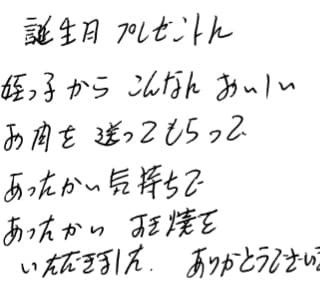 誕生日 プレゼントん
姪っ子から こんなん おいしい
お肉を 送ってもらって
あったかい気持ちで
あったかい すき焼を
いただきました. ありがとうござい